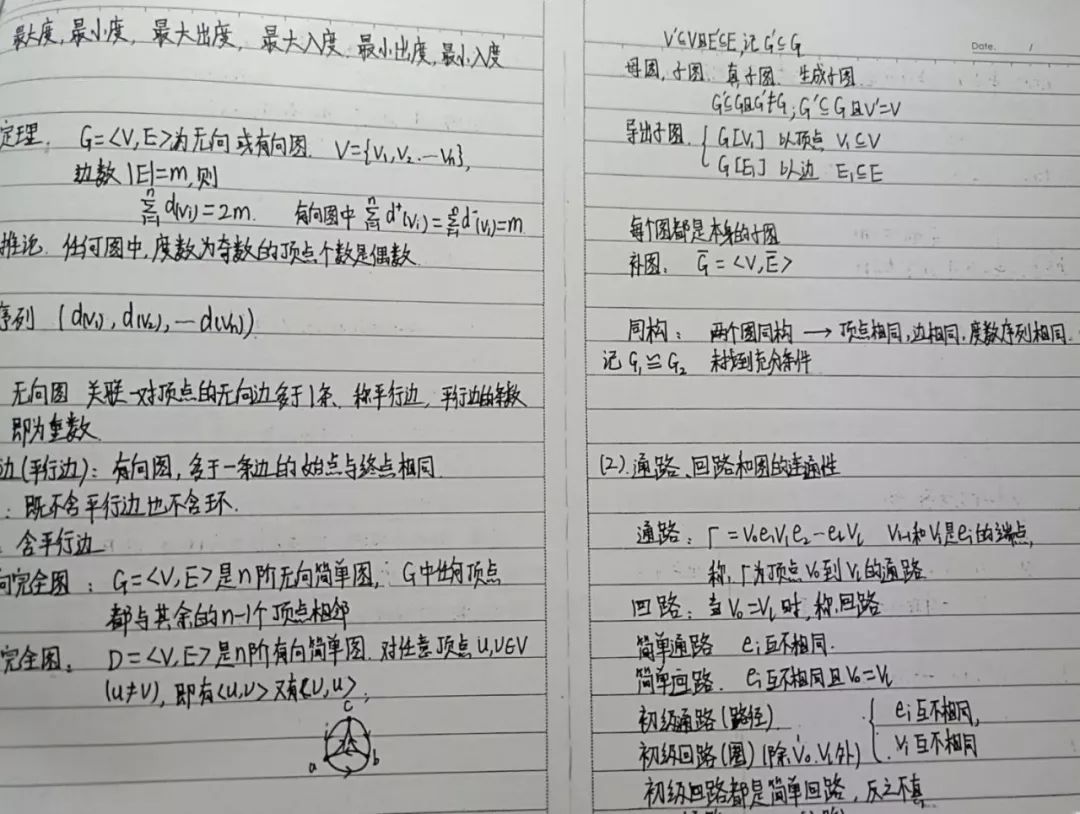 最大度,最小度, 最大出度, 最大入度.最小出度,最小入度
定理. G=<V,E>为无向或有向图. V={v₁,v₂.…vₙ},
边数|E|=m,则
∑ⁿᵢ₌₁ d(vᵢ)=2m. 有向图中 ∑ⁿᵢ₌₁ d⁺(vᵢ)=∑ⁿᵢ₌₁ d⁻(vᵢ)=m
推论. 任何图中,度数为奇数的顶点个数是偶数.
序列 (d(v₁),d(v₂),…d(vₙ))
无向图 关联一对顶点的无向边多于1条、称平行边, 平行边的条数
即为重数.
边(平行边): 有向图,多于一条边的始点与终点相同.
: 既不含平行边也不含环.
含平行边
向完全图: G=<V,E>是n阶无向简单图, G中任何顶点
都与其余的n-1个顶点相邻
完全图. D=<V,E>是n阶有向简单图.对任意顶点u,v∈V
(u≠v),即有<u,v>又有<v,u>.
c
a b
Date. /
V'⊆V且E'⊆E,记G'⊆G
母图,子图. 真子图. 生成子图.
G'⊆G且G'≠G; G'⊆G且V'=V
导出子图. { G[V₁] 以顶点 V₁⊆V
G[E₁] 以边 E₁⊆E
每个图都是本身的子图
补图. G̅=<V,E̅>
同构: 两个图同构 → 顶点相同,边相同.度数序列相同.
记G₁≌G₂ 未找到充分条件
(2).通路、回路和图的连通性
通路: Γ=v₀e₁v₁e₂…eₗvₗ vᵢ₋₁和vᵢ是eᵢ的端点,
称,Γ为顶点v₀到vₗ的通路
回路: 当v₀=vₗ时,称回路
简单通路 eᵢ互不相同.
简单回路. eᵢ互不相同且v₀=vₗ
初级通路(路径) { eᵢ互不相同,
初级回路(圈)(除v₀.vₗ外) vᵢ互不相同
初级回路都是简单回路,反之不真